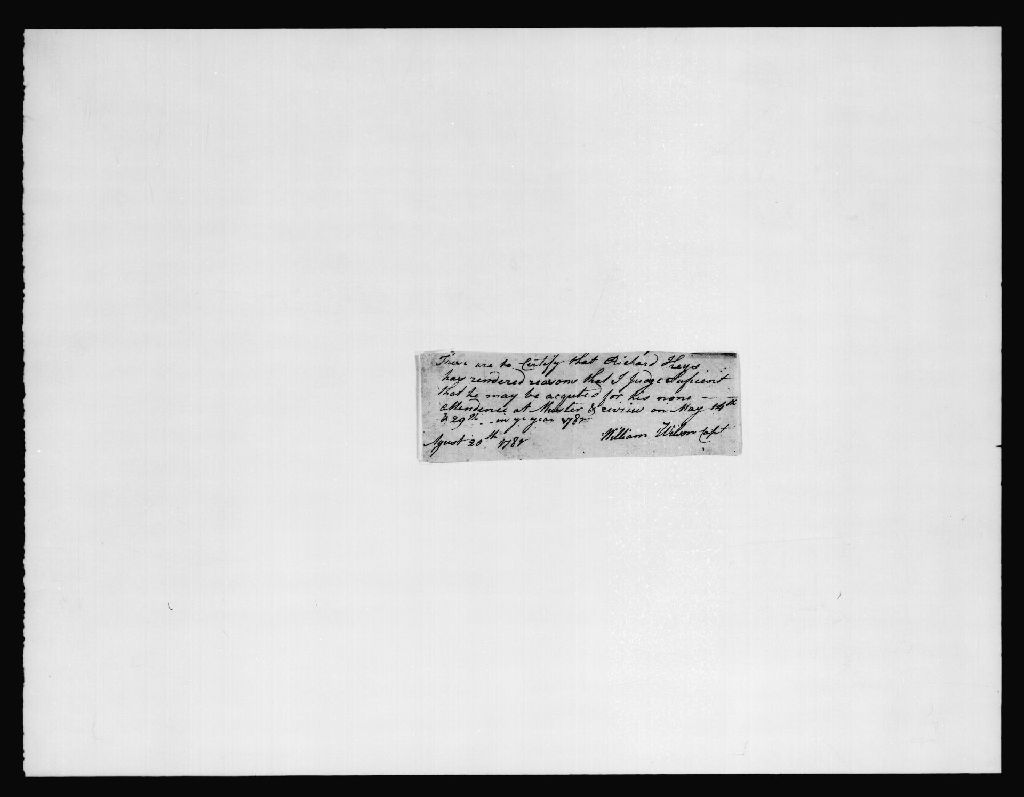 These are to Certify that Richard Keys
has rendered reasons that I Judge Suficient
that he may be acquited for his nons -
attendence at Muster & review on May 14th
& 29th - in ye year 1782
Agust 20th 1782 William Wilson Capt